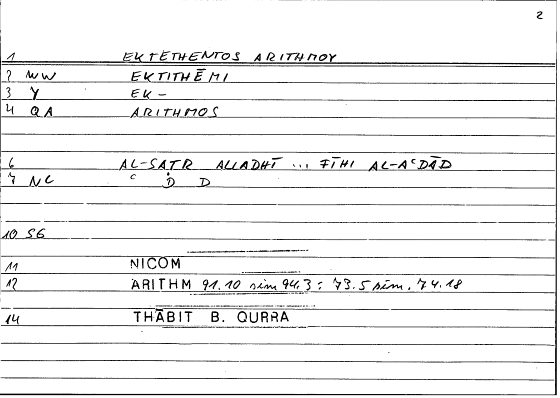 2
1 EKTETHENTOS ARITHMOY
2 WW EKTITHĒMI
3 Y EK-
4 QA ARITHMOS
6 AL-SATR ALLADHĪ ... FĪHI AL-AᶜDĀD
7 NC ᶜ D D
10 SG
11 NICOM
12 ARITHM 91.10 sim 94.3 : 73.5 sim. 74.18
14 THĀBIT B. QURRA